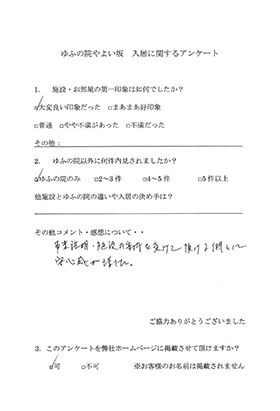 ゆふの院やよい坂　入居に関するアンケート
1.　施設・お部屋の第一印象は如何でしたか？
☑大変良い印象だった　□まあまあ好印象
□普通　□やや不満があった　□不満だった
その他：
2.　ゆふの院以外に何件内見されましたか？
☑ゆふの院のみ　□2～3件　□4～5件　□5件以上
他施設とゆふの院の違いや入居の決め手は？
その他コメント・感想について・・
事業説明・施設の案内を受けて頂ける様にて
安心感が
ご協力ありがとうございました
3. このアンケートを弊社ホームページに掲載させて頂けますか？
☑可　□不可　※お客様のお名前は掲載されません